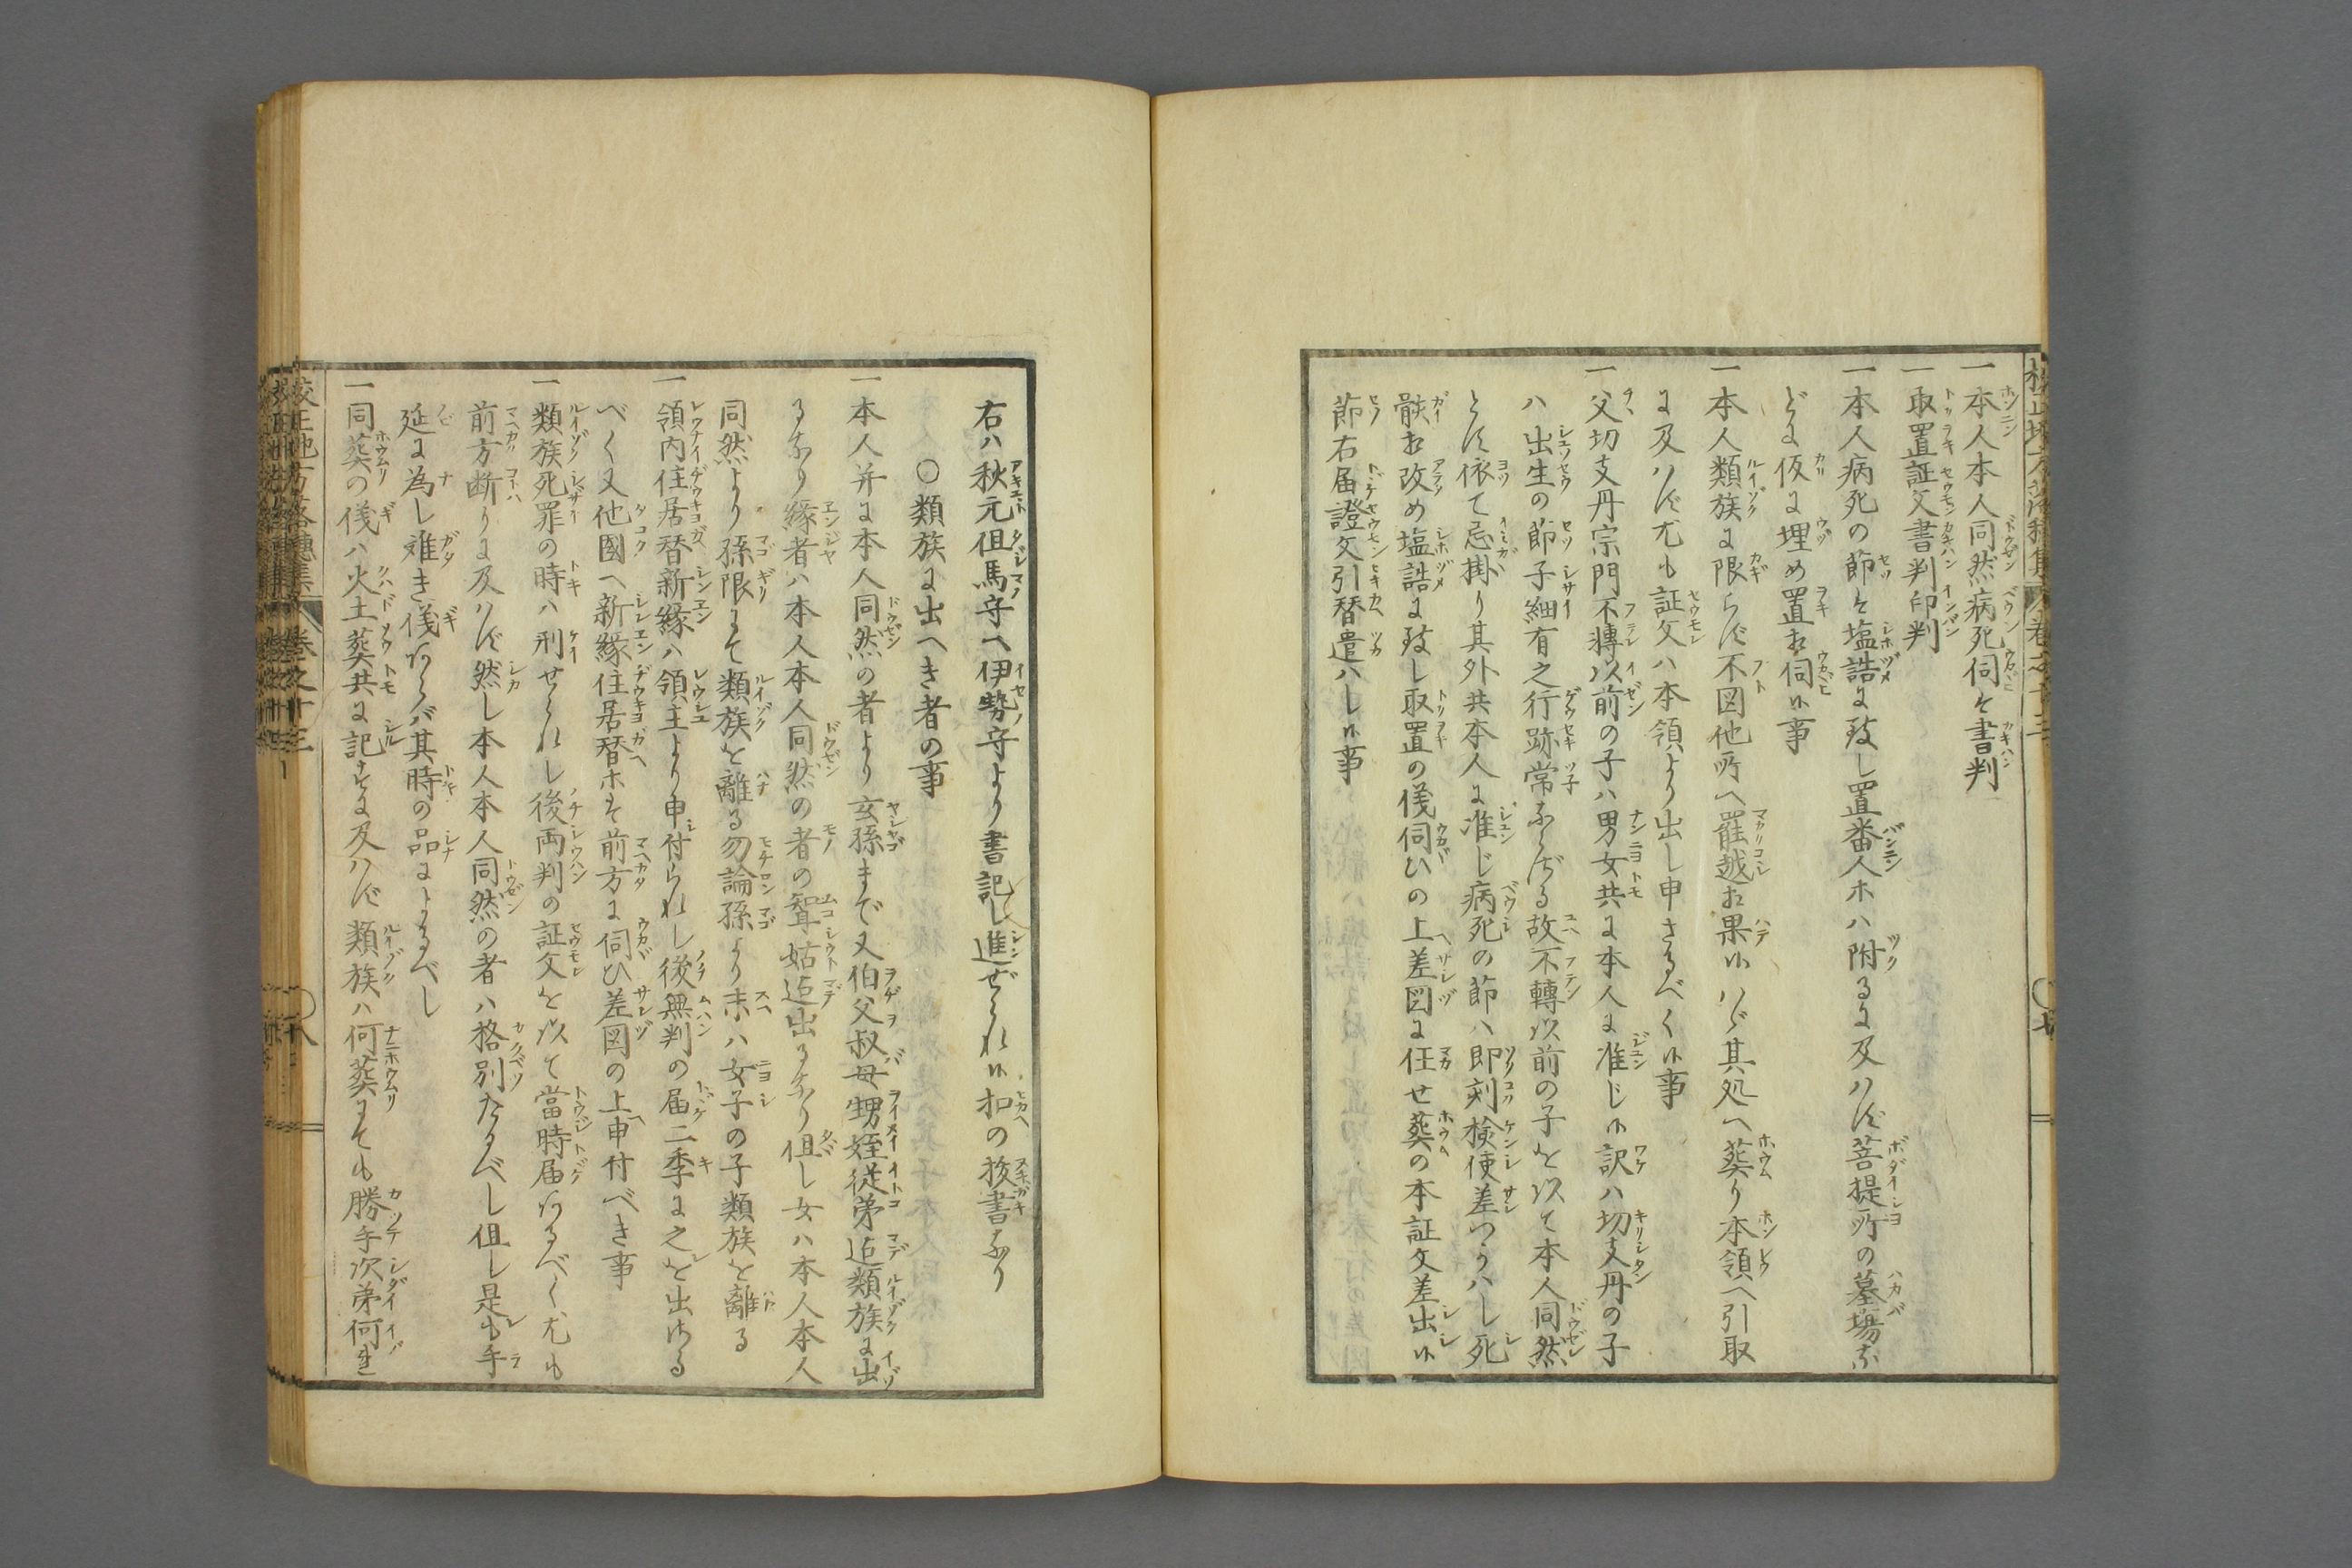 一本人本人同然病死伺ハ書判
一取置証文書判印判
一本人病死の節は塩詰に致し置番人ホハ附るに及ハず菩提所の墓場な
どに仮に埋め置相伺候事
一本人類族に限らず不図他所へ罷越相果候ハヾ其処へ葬り本領へ引取
に及ハず尤も証文ハ本領より出し申さるべく候事
一父切支丹宗門不轉以前の子ハ男女共に本人に准じ候訳ハ切支丹の子
ハ出生の節子細有之行跡常ならざる故不轉以前の子を以て本人同然
とす依て忌掛り其外共本人に准じ病死の節ハ即刻検使差つかハし死
骸相改め塩詰に致し取置の儀伺ひの上差図に任せ葬の本証文差出候
節右届證文引替遣ハし候事
右ハ秋元但馬守へ伊勢守より書記し進ぜられ候扣の抜書なり
〇類族に出へき者の事
一本人并に本人同然の者より玄孫まで又伯父叔母甥姪従弟迄類族に出
るなり縁者ハ本人本人同然の者の聟姑迄出るなり但し女ハ本人本人
同然より孫限にて類族を離る勿論孫より末ハ女子の子類族を離る
一領内住居替新縁ハ領主より申付られし後無判の届二季に之を出さる
べく又他國へ新縁住居替ホは前方に伺ひ差図の上申付べき事
一類族死罪の時ハ刑せられし後両判の証文を以て當時届あるべく尤も
前方断りに及ハず然し本人本人同然の者ハ格別たるべし但し是も手
延に為し難き儀あらバ其時の品によるべし
一同葬の儀ハ火土葬共に記すに及ハず類族ハ何葬にても勝手次第何れ
校正地方落穂集
巻之十三
〇八